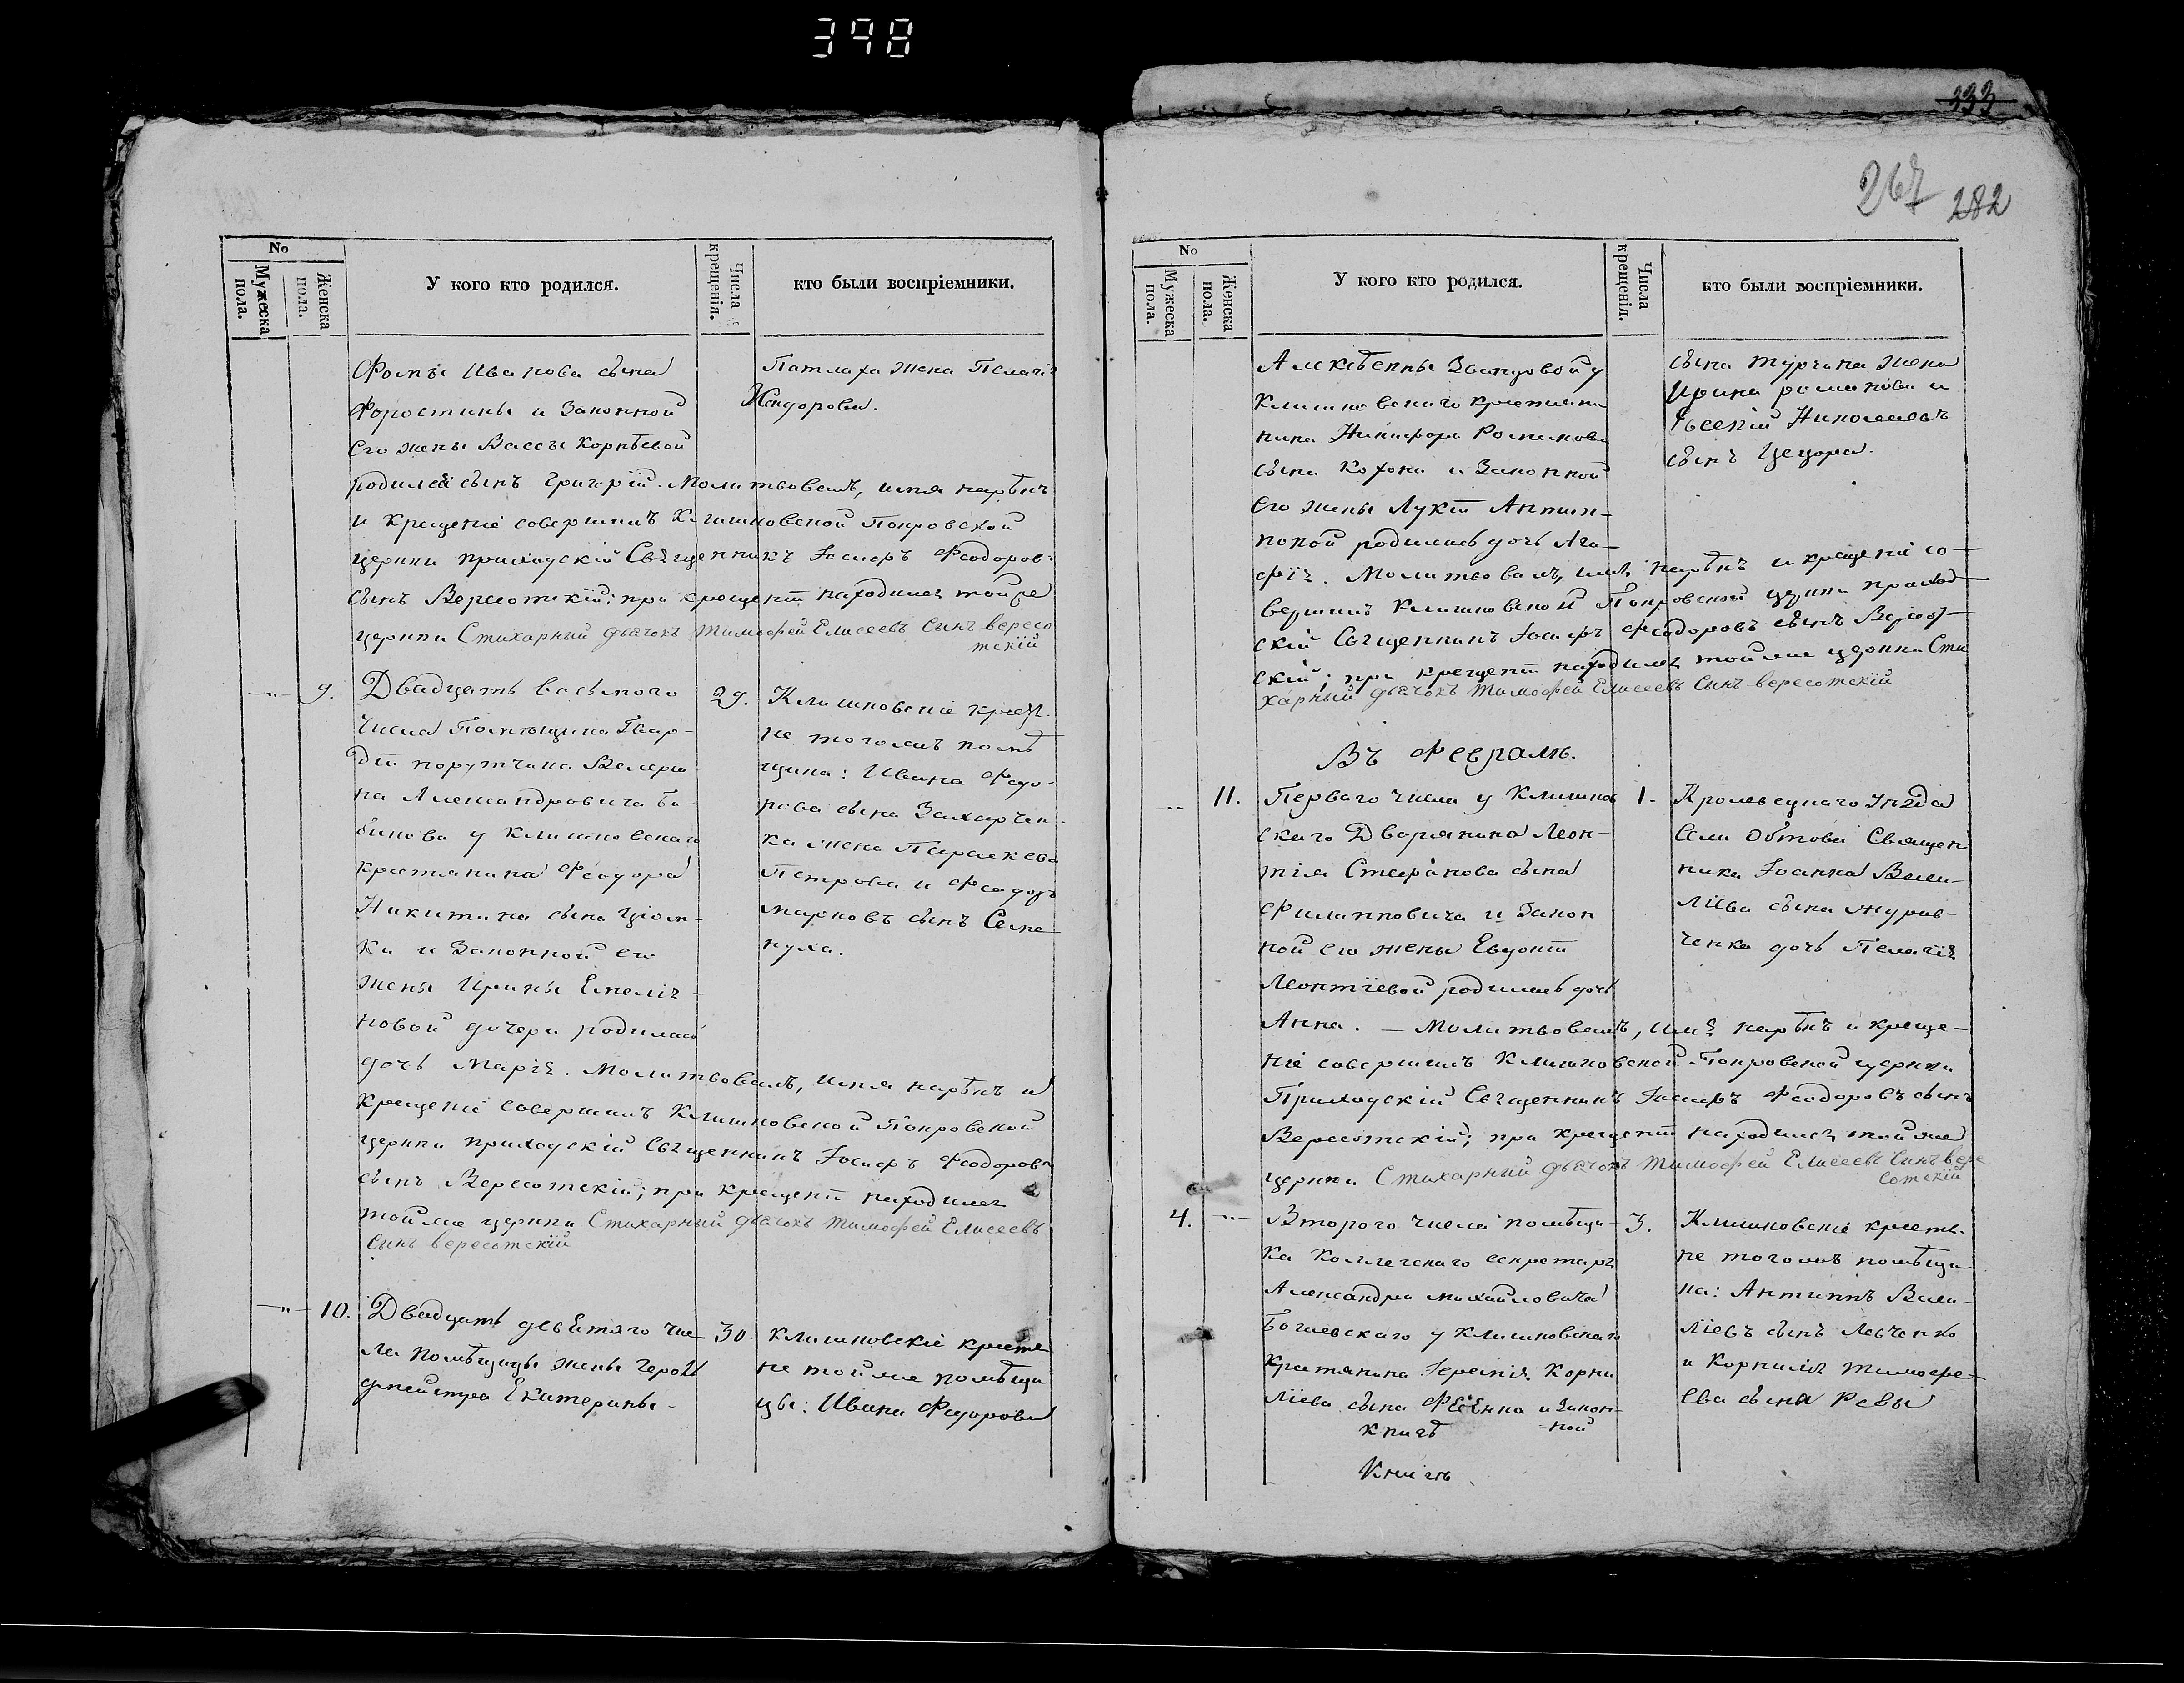 398
333
267 282
No
Мужеска пола.
Женска пола.
У кого кто родился.
Числа крещенія.
кто были воспріемники.
Фомы Иванова сына
Форостины и Законной
его жены Вассы Корнѣевой
родился сынъ Григорій. Молитвовалъ, имя нарѣкъ
и крещеніе совершилъ Клишковской Покровской
церкви приходскій Священникъ Іосифъ Феодоровъ
сынъ Вересотскій; при крещеніи находился той же
церкви Стихарный дьячокъ Тимофей Елисеевъ Сынъ вересо
тскій
Патлаха жена Пелагія
Сидорова.
9.
Двадцать восьмого
числа Помѣщика Гвар-
діи порутчика Валеріа-
на Александровича
у Клишковскаго
крестянина Феодора
Никитина сына
ки и Законной его
жены Ирины Емелія-
новой дочери родилась
дочь Марія. Молитвовалъ, имя нарѣкъ и
крещеніе совершилъ Клишковской Покровской
церкви приходскій Священникъ Іосифъ Феодоровъ
сынъ Вересотскій; при крещеніи находился
той же церкви Стихарный дьячокъ Тимофей Елисеевъ
Сынъ вересотскій
29.
Клишковскіе крестя-
не того жъ помѣ
щика: Ивана Федо-
рова сына Захарчен-
ка жена Параскева
Петрова и Феодоръ
Марковъ сынъ Семе-
нуха.
10.
Двадцать девѣтяго чис-
ла помѣщицы жены
Екатерины
30.
Клишковскіе крестя
не той же помѣщи
цы: Ивана Федорова
No
Мужеска пола.
Женска пола.
У кого кто родился.
Числа крещенія.
кто были воспріемники.
у
Клишковскаго крестяни
нина Никифора Романова
сына Кохана и Законной
его жены Анти-
повой родилась дочь Ага-
фія. Молитвовалъ, имя нарѣкъ и крещеніе со-
вершилъ Клишковской Покровской церкви приход
скій Священникъ Іосифъ Феодоровъ сынъ Вересот-
скій; при крещеніи находился той же церкви Сти
харный дьячокъ Тимофей Елисеевъ Сынъ вересотскій
сына Турчина жена
Ирина Романова и
Евсевій Николаевъ
сынъ Цецора.
Въ Февралѣ.
11.
Перваго числа у Клишков
скаго Дворянина Леон-
тія Стефанова сына
Филипповича и Закон
ной его жены Евдокіи
Леонтіевой родилась дочь
Анна. — Молитвовалъ, имя нарѣкъ и креще-
ніе совершилъ Клишковской Покровской церкви
Приходскій Священникъ Іосифъ Феодоровъ сынъ
Вересотскій; при крещеніи находился той же
церкви Стихарный дьячокъ Тимофей Елисеевъ Сынъ вере
сотскій
1.
Кролевецкаго уѣзда
села Обтова Священ
ника Іоанна Васи-
ліева сына Журав-
ченка дочь Пелагія
4.
Второго числа помѣщи-
ка Коллежскаго секретаря
Александра Михайловича
Богаевскаго у Клишковскаго
крестянина Іеремія Корни
ліева сына и Закон-
ной
книгѣ
Книгѣ
3.
Клишковскіе крестья-
не того жъ помѣщи
ка: Антипъ Васи-
ліевъ сынъ Левченко
и Корнилія Тимофе-
ева сына Ревы